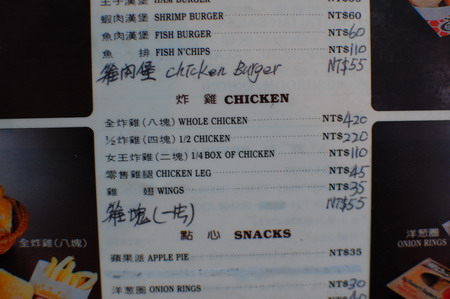 王子漢堡 HAM BURGER
蝦肉漢堡 SHRIMP BURGER NT$60
魚肉漢堡 FISH BURGER NT$60
魚 排 FISH N'CHIPS NT$110
雞肉堡 chicken Burger NT$55
炸 雞 CHICKEN
全炸雞(八塊) WHOLE CHICKEN NT$420
½炸雞(四塊) 1/2 CHICKEN NT$220
女王炸雞(二塊) 1/4 BOX OF CHICKEN NT$110
零售雞腿 CHICKEN LEG NT$45
雞 翅 WINGS NT$35
雞塊(一片) NT$55
點 心 SNACKS
蘋果派 APPLE PIE NT$35
洋葱圈 ONION RINGS NT$30
全炸雞(八塊)
洋葱圈
ONION RINGS